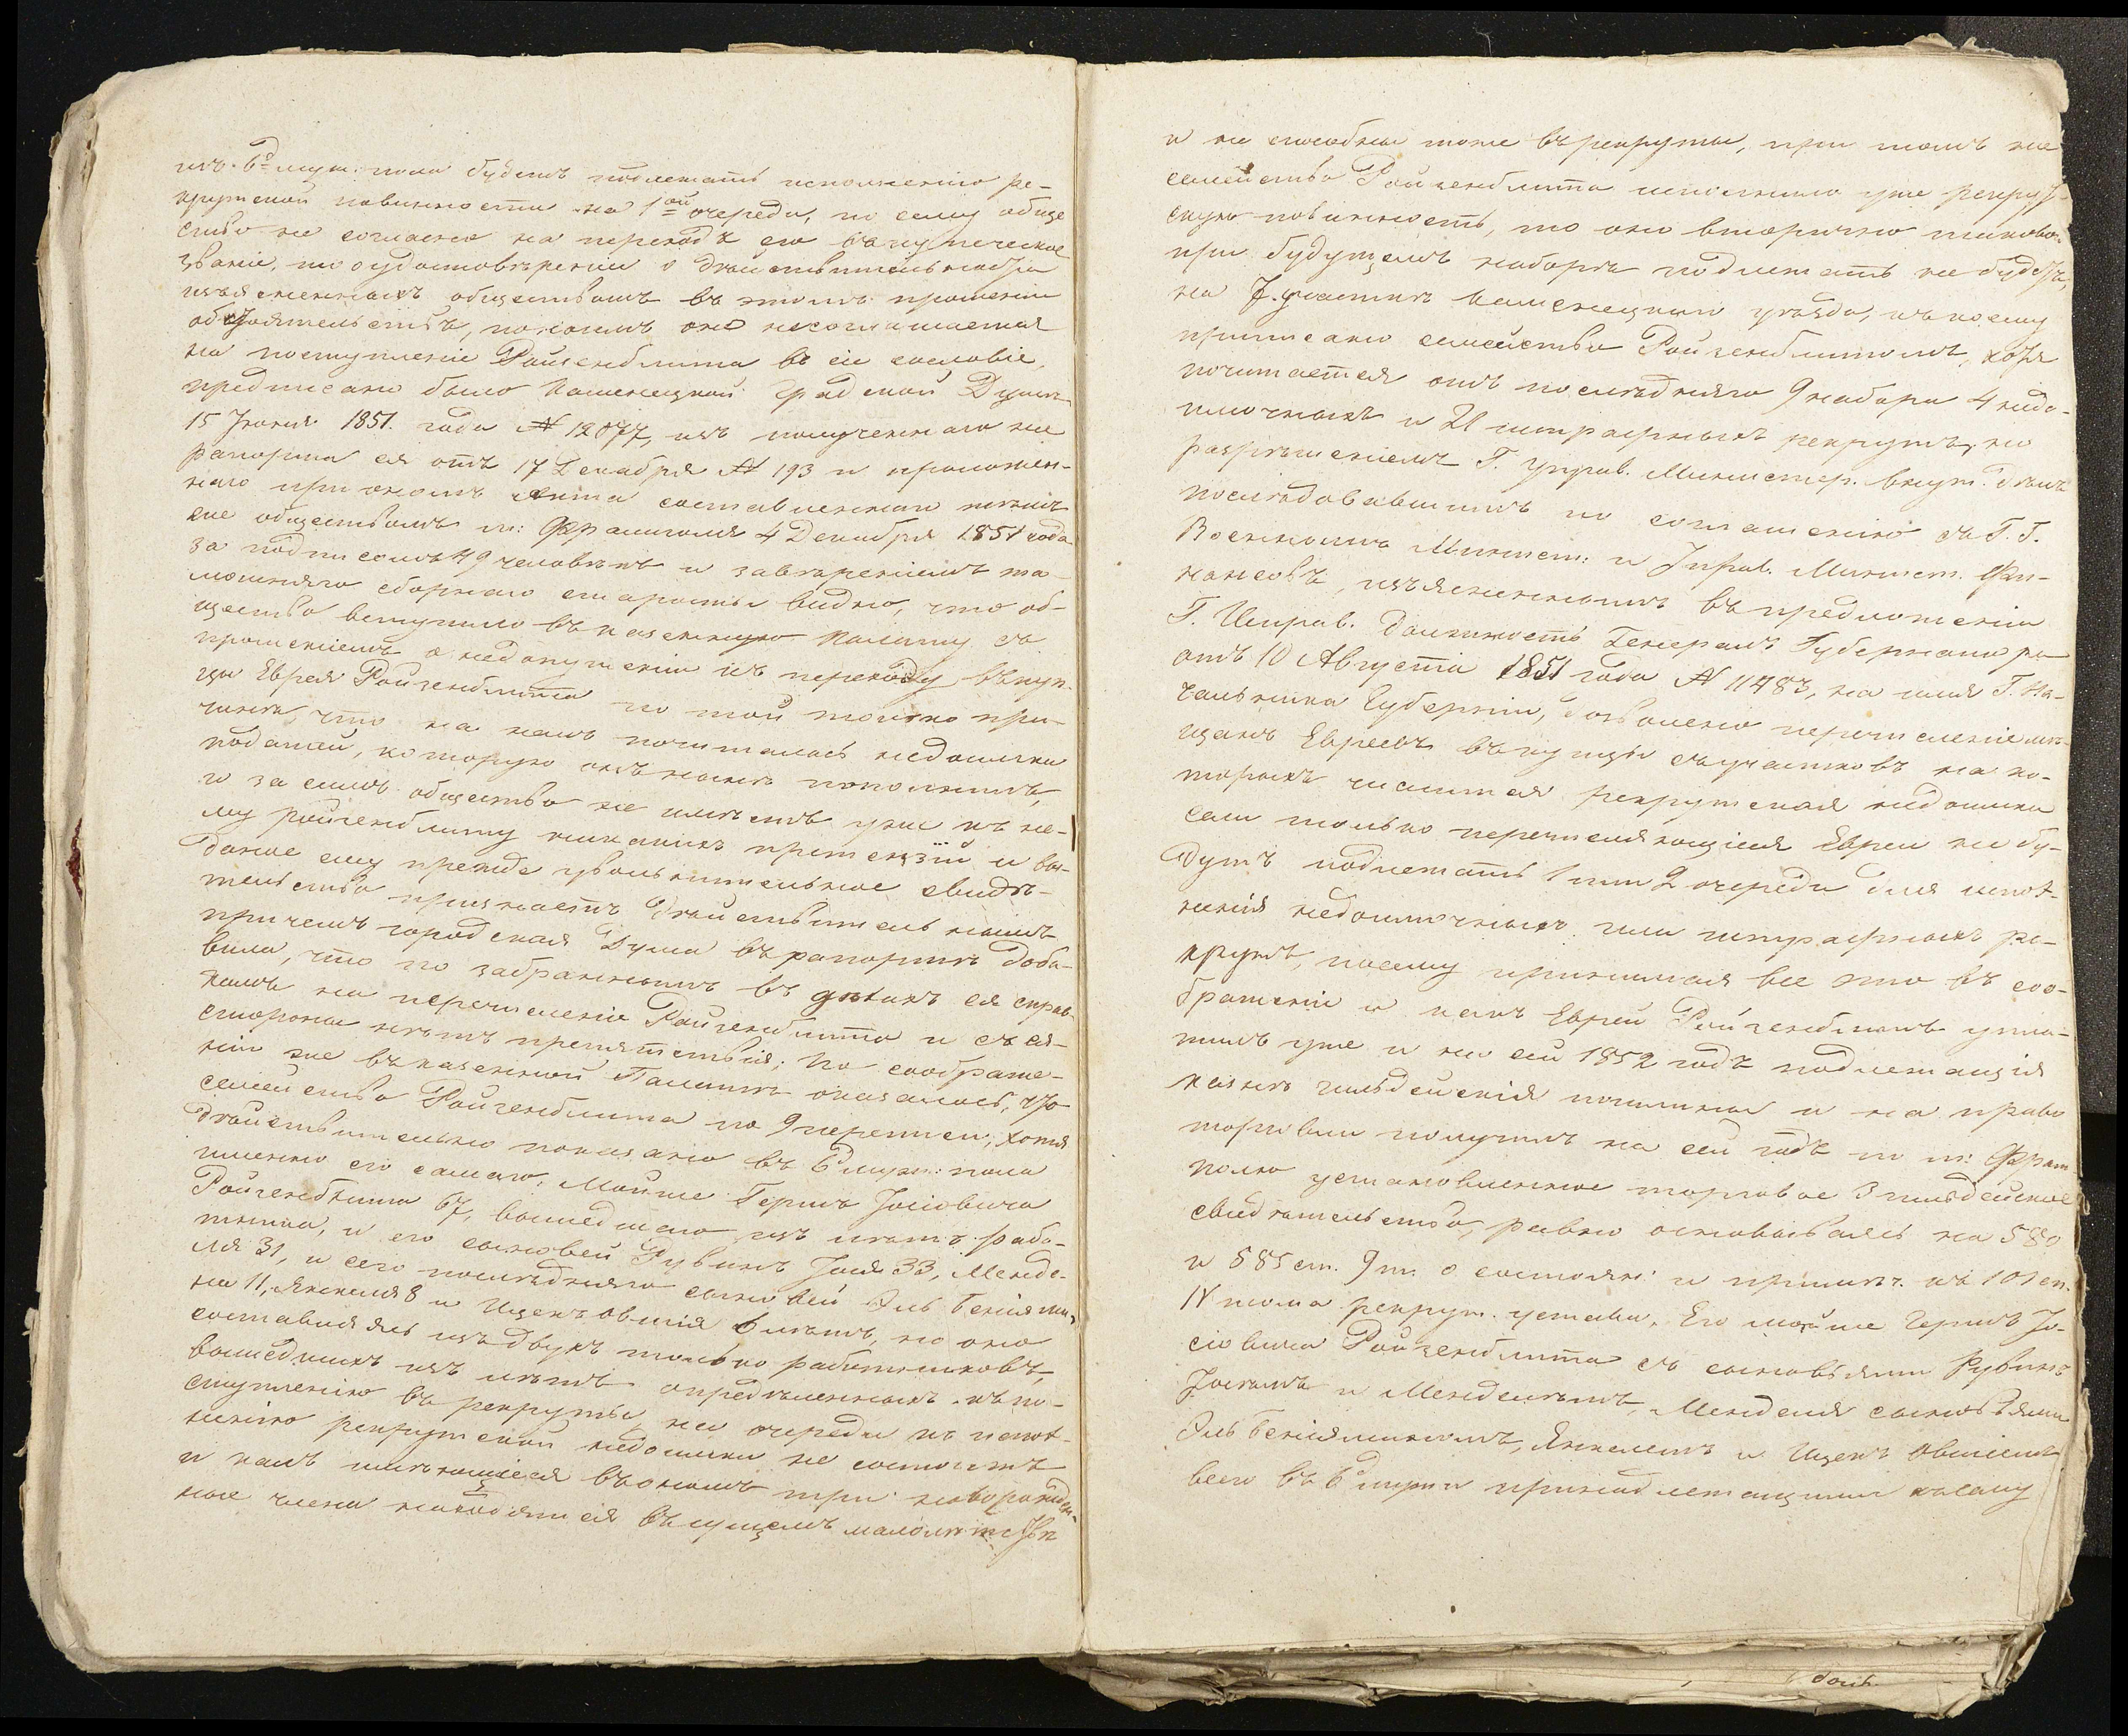 изъ 6<sup>д</sup> муж: пола будетъ подлежать исполненію ре-
крутской повинности на 1<sup>ой</sup> очереди, по сему обще
ство не согласно на переходъ его въ купеческое
званіе, то о удостовѣреніи о дѣйствительности
изъясненныхъ обществомъ въ этомъ прошеніи
обстоятельствъ, по коимъ оно несоглашается
на поступленіе Ройзенблита въ сіе сословіе,
предписано было Каменецкой Градской Думѣ
15 Іюня 1851. года № 12077, изъ полученнаго же
рапорта ея отъ 17 Декабря № 193 и приложен-
наго при ономъ акта составленнаго тѣмъ
же обществомъ м: Фрамполя 4 Декабря 1851 года
за подписомъ 49 человѣкъ и завѣреніемъ та-
мошняго сборнаго старосты видно, что об-
щество вступило въ казенную Палату съ
прошеніемъ о недопущеніи къ переходу въ куп-
цы Еврея Ройзенблита по той только при-
чинѣ, что на немъ почиталась недоимка
податей, которую онъ нынѣ пополнилъ,
и за симъ общество не имѣетъ уже къ не-
му Ройзенблиту никакихъ претензій и вы-
данное ему прежде увольнительное свидѣ-
тельство признаетъ дѣйствительнымъ
при чемъ городская Дума въ рапортѣ доба-
вила, что по забраннымъ въ дѣлахъ ея справ-
камъ на перечисленіе Ройзенблита и съ ея
стороны нѣтъ препятствія; По соображе-
ніи же въ казенной Палатѣ оказалось, что
семейство Ройзенблита по 9 переписи, хотя
дѣйствительно показано въ 6<sup>д</sup> муж: пола
именно его самаго: Мойше Герша Іосіовича
Ройзенблита 67, вышедшаго изъ лѣтъ рабо-
тника, и его сыновей Рувинъ Іося 33, Менде-
ля 31, и сего послѣдняго сыновей Эль Беніями-
на 11, Янкеля 8 и Ицекъ Овшія 6 лѣтъ, но оно
составляясь изъ двухъ только работниковъ,
вышедшихъ изъ лѣтъ опредѣленныхъ къ по-
ступленію въ рекруты, на очереди къ испол-
ненію рекрутской недоимки не состоитъ
и какъ имѣющіеся въ ономъ три новорожден-
ные члена находятся въ сущемъ малолѣтствѣ
и не способны тоже въ рекруты, при томъ же
семейство Ройзенблита исполнило уже рекрут-
скую повинность, то оно вторично таковой
при будущемъ наборѣ подлежать не будетъ,
на 7. участкѣ Каменецкаго уѣзда, къ коему
приписано семейство Ройзенблитомъ, хотя
почитается отъ послѣдняго 9 набора 4 недо-
имочныхъ и 21 штрафныхъ рекрутъ, но
разрѣшеніемъ Г. Управ. Министер. Внут. Дѣлъ
послѣдовавшимъ по соглашенію съ Г. Г.
Военнымъ Минист: и Управ. Минист. Фи-
нансовъ, изъясненнымъ въ предложеніи
Г. Исправ. Должность Генералъ Губернатора
отъ 10 Августа 1851 года № 11483, на имя Г. На-
чальника Губерніи, дозволено перечисленіе мѣ-
щанъ Евреевъ въ купцы съ участковъ на ко-
торыхъ числится рекрутская недоимка
если только перечисляющіеся Евреи не бу-
дутъ подлежать 1 или 2 очереди для испол-
ненія недоимочныхъ или штрафныхъ ре-
крутъ, посему принимая все это въ соо-
браженіе и какъ Еврей Ройзенблитъ упла-
тилъ уже и на сей 1852 годъ подлежащія
казнѣ гильдейскія пошлины и на право
торговли получилъ на сей годъ по м: Фрам-
полю установленное торговое 3 гильдейское
свидѣтельство, равно основываясь на 580
и 585 ст. 9 т. о состоян: и примѣч. къ 101 ст.
IV тома рекрут. устава, Его Мойше Герша Іо-
сіовича Ройзенблита съ сыновьями Рувинъ
Іосьемъ и Менделемъ, Менделя сыновьями
Эль Беніяминомъ, Янкелемъ и Ицекъ Овшіемъ
всего въ 6<sup>д</sup> муж и принадлежащими къ сему